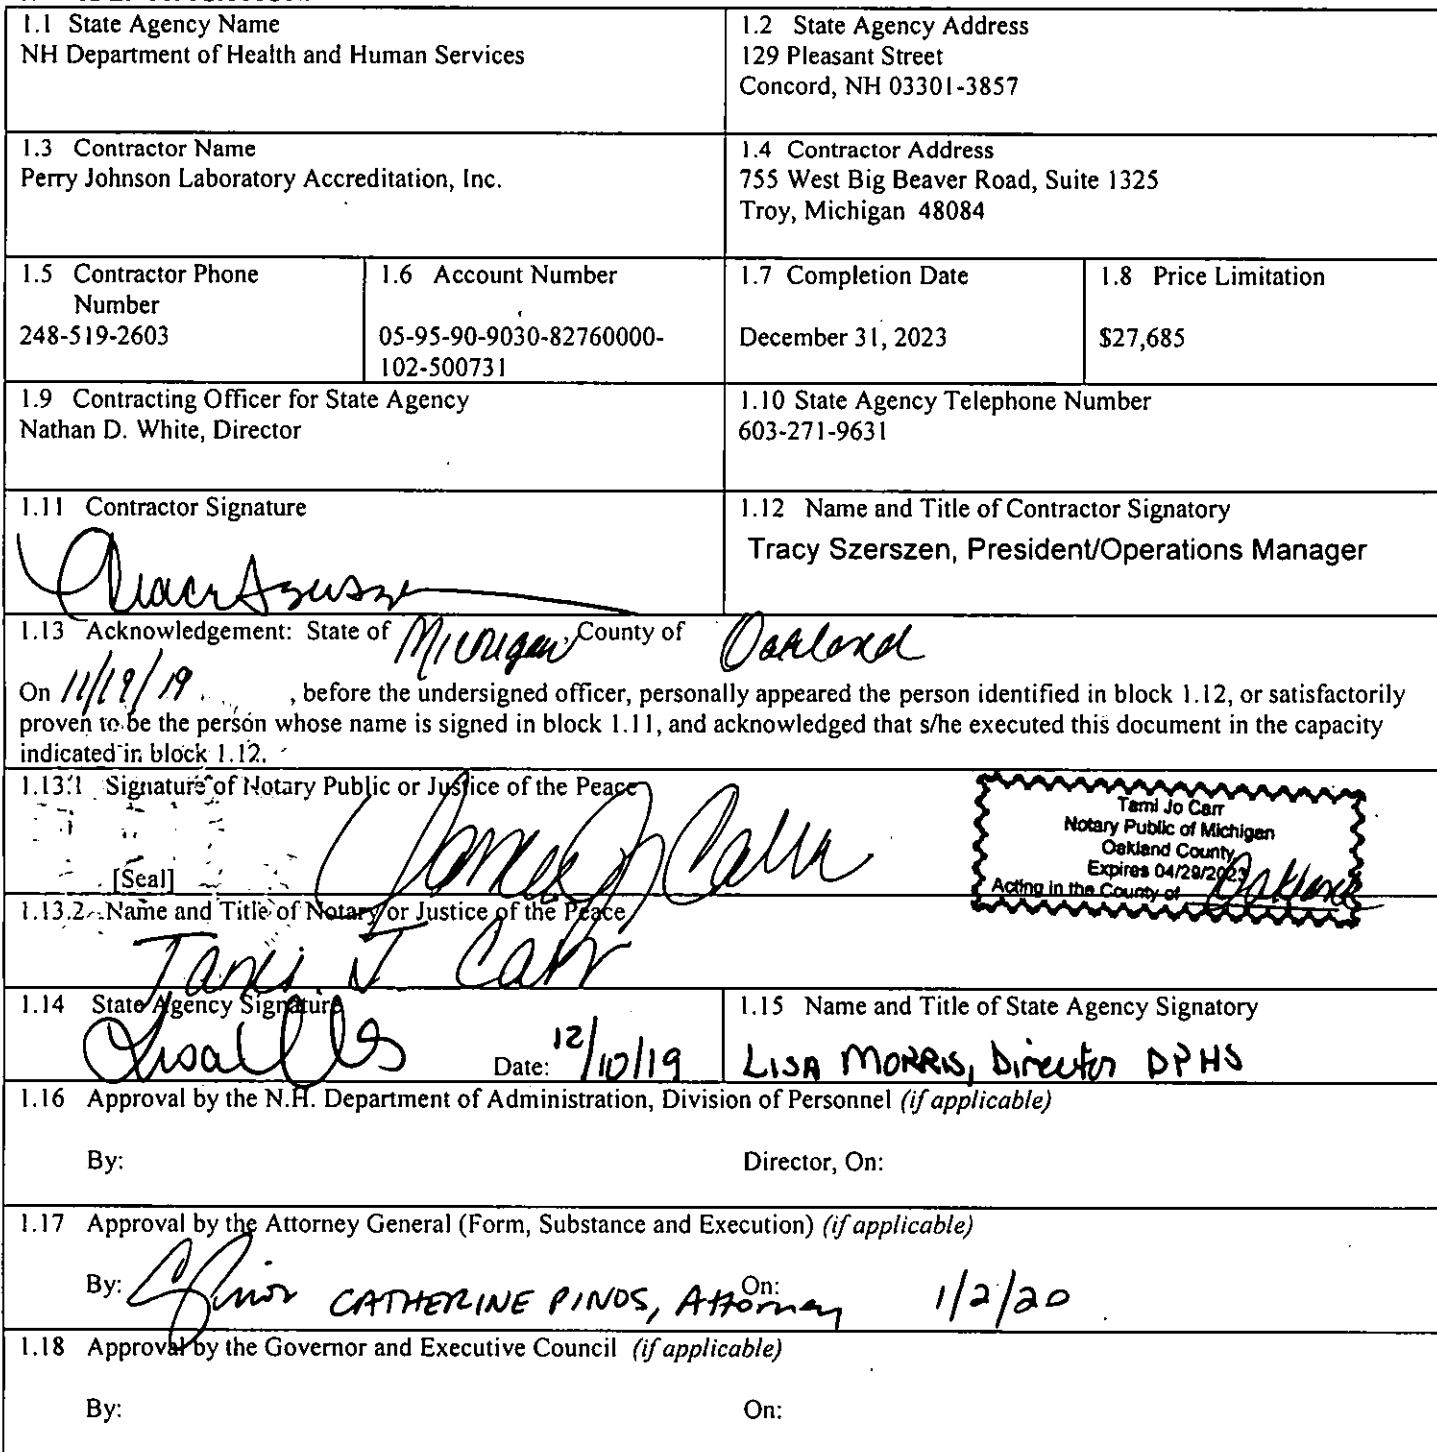 1.1 State Agency Name
NH Department of Health and Human Services
1.2 State Agency Address
129 Pleasant Street
Concord, NH 03301-3857
1.3 Contractor Name
Perry Johnson Laboratory Accreditation, Inc.
1.4 Contractor Address
755 West Big Beaver Road, Suite 1325
Troy, Michigan 48084
1.5 Contractor Phone
Number
248-519-2603
1.6 Account Number
05-95-90-9030-82760000-
102-500731
1.7 Completion Date
December 31, 2023
1.8 Price Limitation
$27,685
1.9 Contracting Officer for State Agency
Nathan D. White, Director
1.10 State Agency Telephone Number
603-271-9631
1.11 Contractor Signature
1.12 Name and Title of Contractor Signatory
Tracy Szerszen, President/Operations Manager
1.13 Acknowledgement: State of Michigan, County of Oakland
On 11/19/19 , before the undersigned officer, personally appeared the person identified in block 1.12, or satisfactorily
proven to be the person whose name is signed in block 1.11, and acknowledged that s/he executed this document in the capacity
indicated in block 1.12.
1.13.1 Signature of Notary Public or Justice of the Peace
[Seal]
Tami Jo Carr
Notary Public of Michigan
Oakland County
Expires 04/29/2023
Acting in the County of Oakland
1.13.2 Name and Title of Notary or Justice of the Peace
Tami J Carr
1.14 State Agency Signature
Date: 12/10/19
1.15 Name and Title of State Agency Signatory
LISA MORRIS, Director DPHS
1.16 Approval by the N.H. Department of Administration, Division of Personnel (if applicable)
By: Director, On:
1.17 Approval by the Attorney General (Form, Substance and Execution) (if applicable)
By: CATHERINE PINOS, Attorney On: 1/2/20
1.18 Approval by the Governor and Executive Council (if applicable)
By: On: